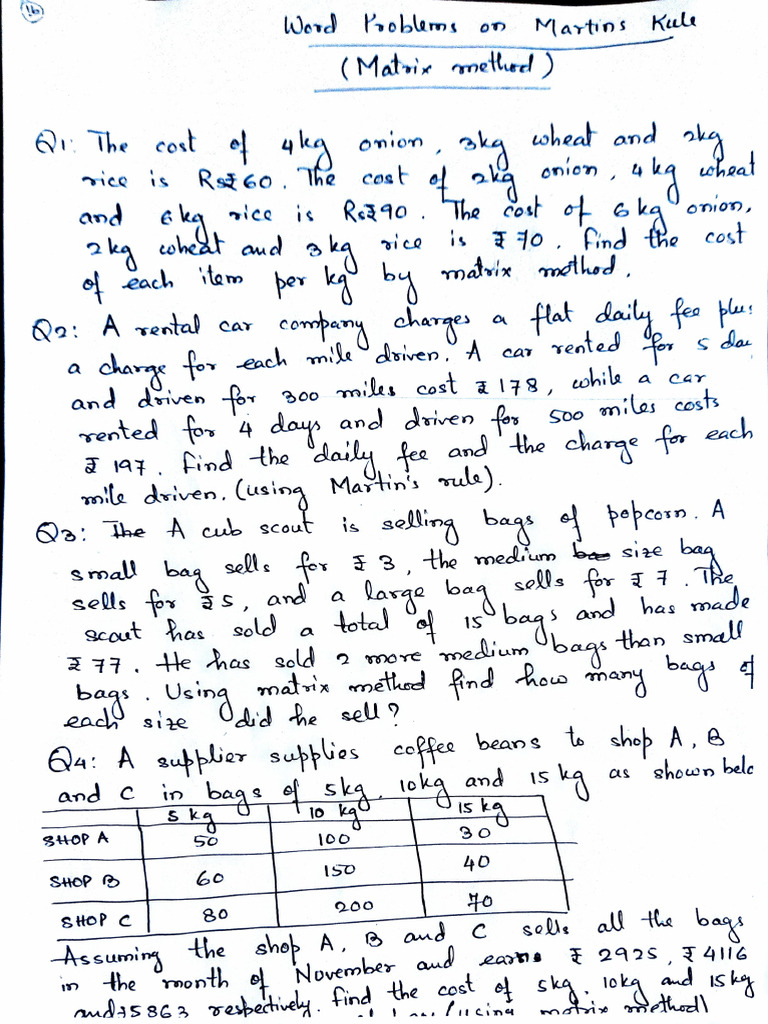 16
Word Problems on Martins Rule
(Matrix method)
Q1: The cost of 4kg onion, 3kg wheat and 2kg
rice is Rs₹60. The cost of 2kg onion, 4 kg wheat
and 6kg rice is Rs₹90. The cost of 6 kg onion,
2kg wheat and 3kg rice is ₹70. find the cost
of each item per kg by matrix method.
Q2: A rental car company charges a flat daily fee plus
a charge for each mile driven. A car rented for 5 da
and driven for 300 miles cost ₹178, while a car
rented for 4 days and driven for 500 miles costs
₹197. find the daily fee and the charge for each
mile driven. (using Martin's rule).
Q3: The A cub scout is selling bags of popcorn. A
small bag sells for ₹3, the medium size bag
sells for ₹5, and a large bag sells for ₹7. The
scout has sold a total of 15 bags and has made
₹77. He has sold 2 more medium bags than small
bags. Using matrix method find how many bags of
each size did he sell?
Q4: A supplier supplies coffee beans to shop A, B
and C in bags of 5kg, 10kg and 15kg as shown belo
5 kg 10 kg 15 kg
SHOP A 50 100 30
SHOP B 60 150 40
SHOP C 80 200 70
Assuming the shop A, B and C sells all the bags
in the month of November and earns ₹2925, ₹4116
and ₹5863 respectively. find the cost of 5kg, 10kg and 15kg
(using matrix method)